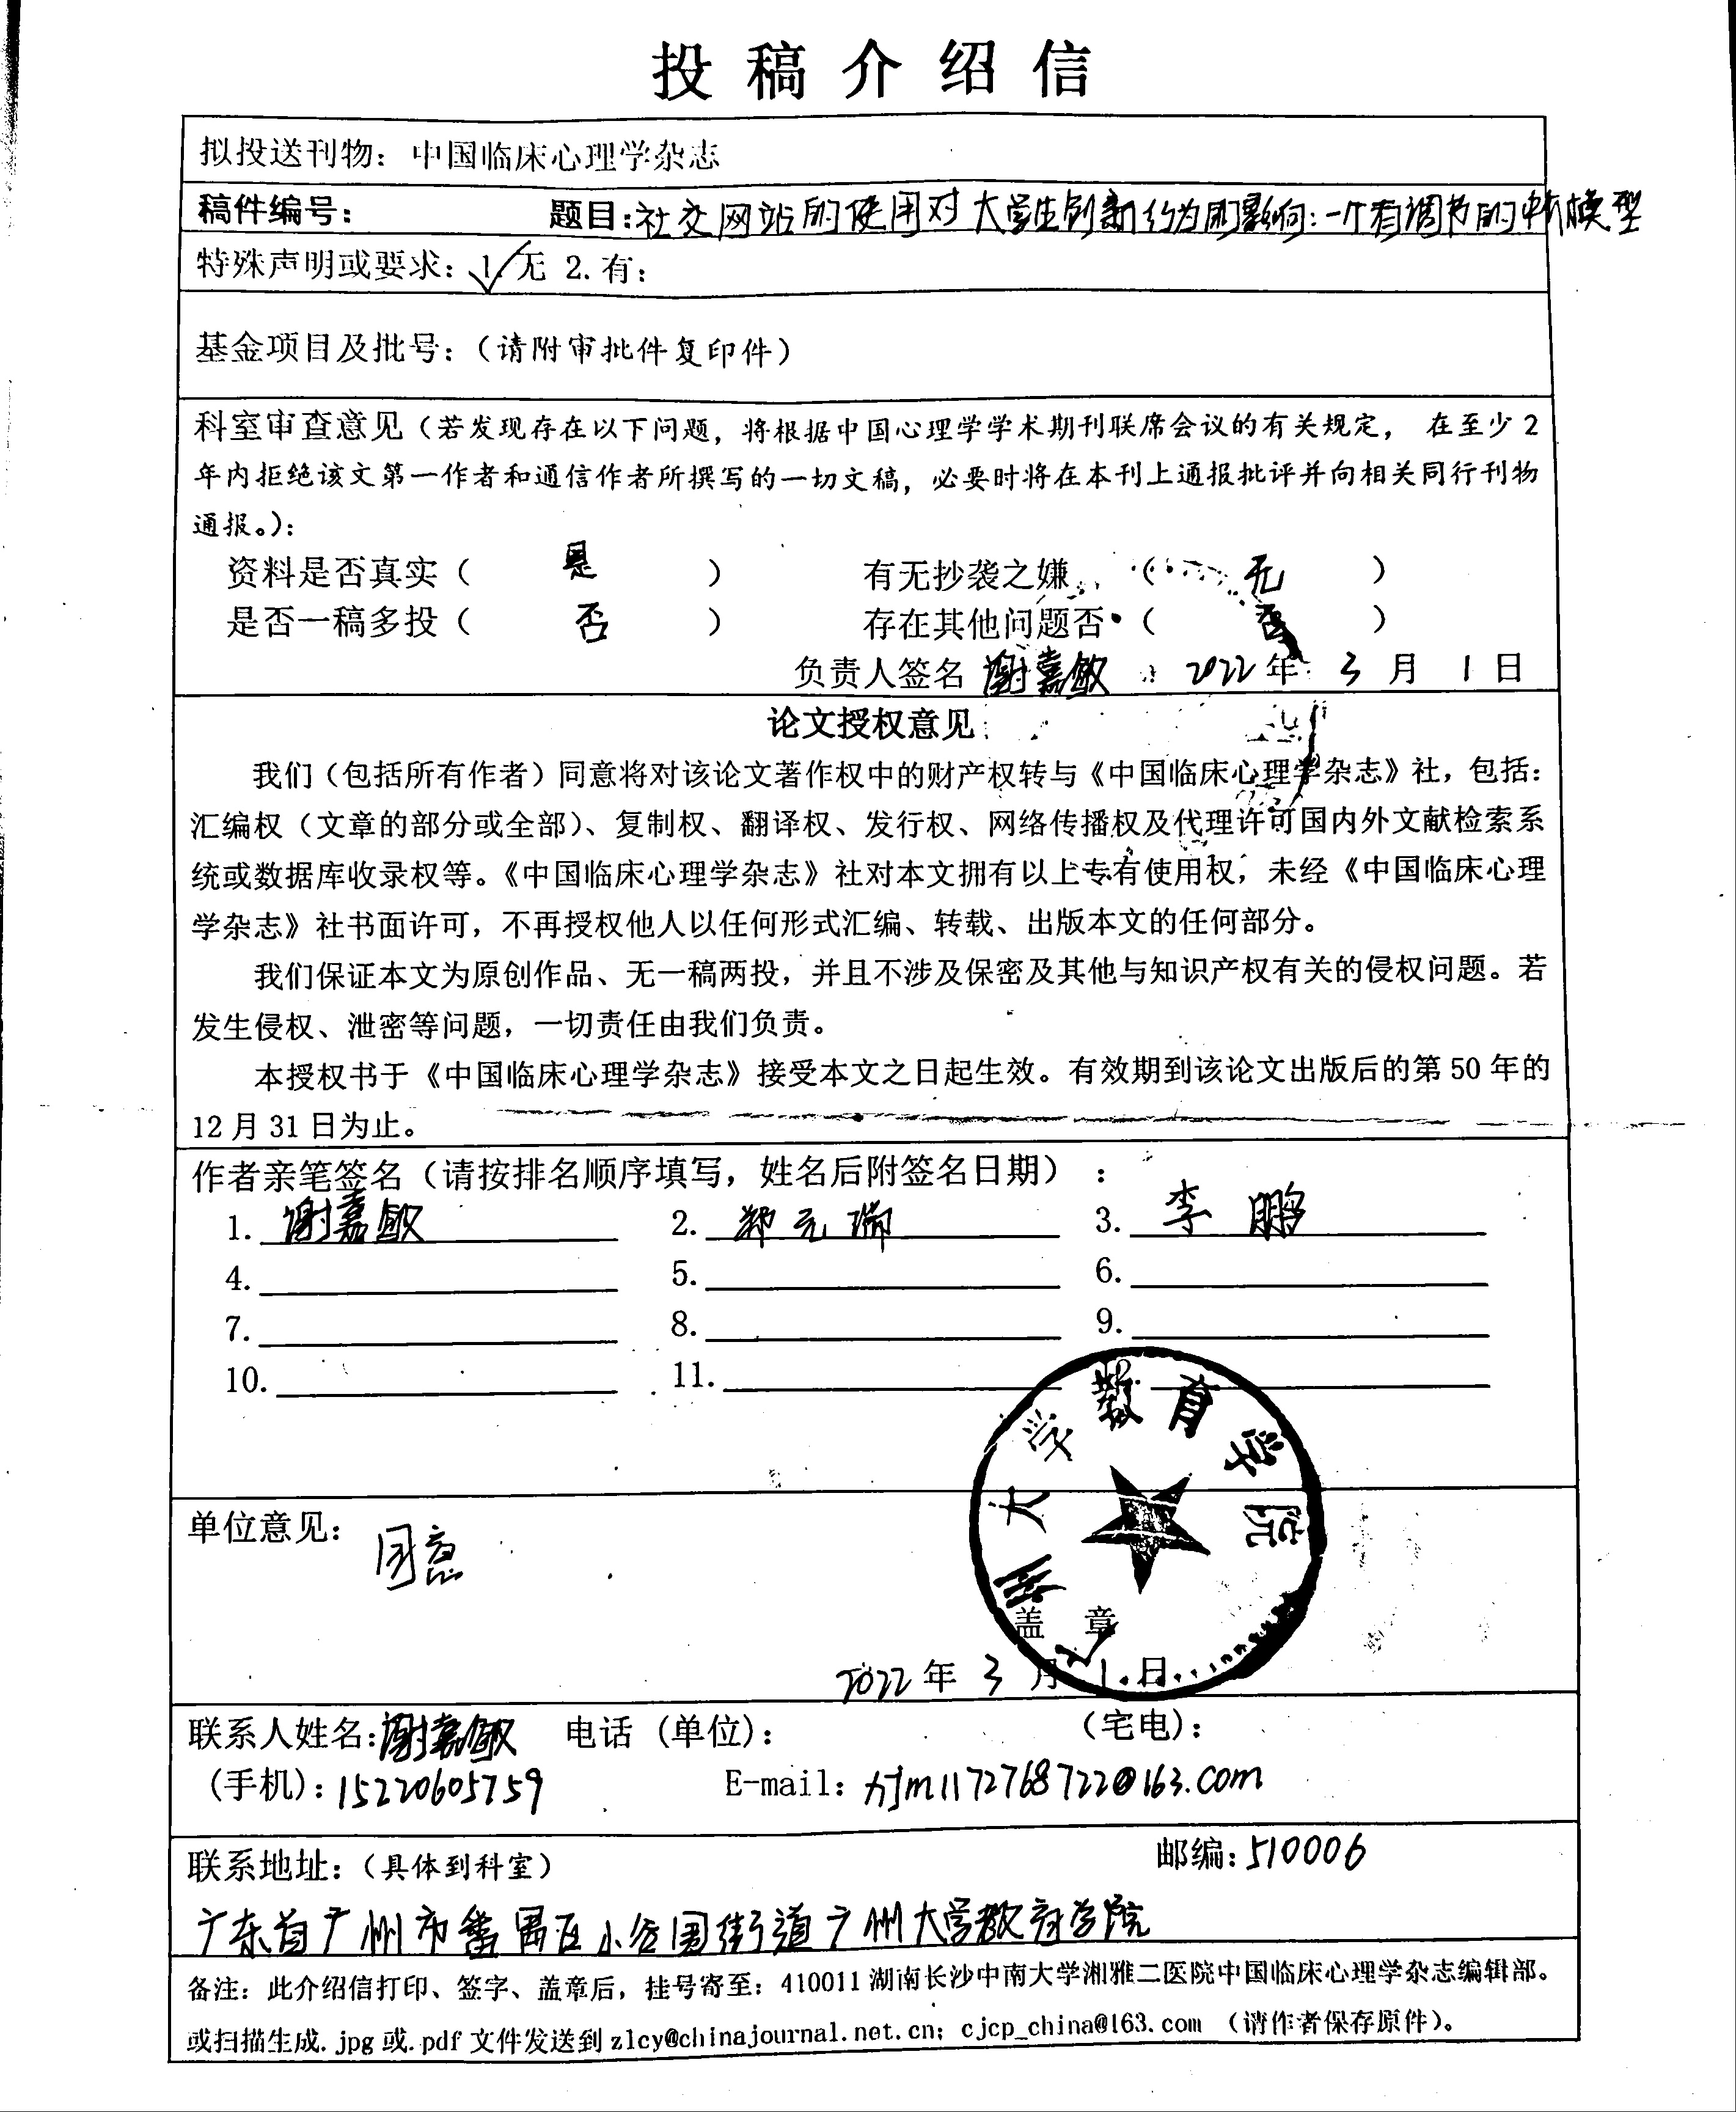 投稿介绍信
拟投送刊物：中国临床心理学杂志
稿件编号： 题目：社交网站的使用对大学生创新行为的影响：一个有调节的中介模型
特殊声明或要求：1.√无 2.有：
基金项目及批号：（请附审批件复印件）
科室审查意见（若发现存在以下问题，将根据中国心理学学术期刊联席会议的有关规定， 在至少 2
年内拒绝该文第一作者和通信作者所撰写的一切文稿，必要时将在本刊上通报批评并向相关同行刊物
通报。）：
资料是否真实（ 是 ） 有无抄袭之嫌 （ 无 ）
是否一稿多投（ 否 ） 存在其他问题否 （ 否 ）
负责人签名 谢嘉敏 2022 年 3 月 1 日
论文授权意见
我们（包括所有作者）同意将对该论文著作权中的财产权转与《中国临床心理学杂志》社，包括：
汇编权（文章的部分或全部）、复制权、翻译权、发行权、网络传播权及代理许可国内外文献检索系
统或数据库收录权等。《中国临床心理学杂志》社对本文拥有以上专有使用权，未经《中国临床心理
学杂志》社书面许可，不再授权他人以任何形式汇编、转载、出版本文的任何部分。
我们保证本文为原创作品、无一稿两投，并且不涉及保密及其他与知识产权有关的侵权问题。若
发生侵权、泄密等问题，一切责任由我们负责。
本授权书于《中国临床心理学杂志》接受本文之日起生效。有效期到该论文出版后的第 50 年的
12 月 31 日为止。
作者亲笔签名（请按排名顺序填写，姓名后附签名日期）：
1. 谢嘉敏 2. 郑元瑞 3. 李鹏
4. 5. 6.
7. 8. 9.
10. 11. 12.
广州大学教育学院
单位意见： 同意
盖 章
2022 年 3 月 1 日
联系人姓名：谢嘉敏 电话（单位）： （宅电）：
（手机）：15220605759 E-mail：xjm1172768722@163.com
联系地址：（具体到科室） 邮编：510006
广东省广州市番禺区小谷围街道广州大学教育学院
备注：此介绍信打印、签字、盖章后，挂号寄至：410011 湖南长沙中南大学湘雅二医院中国临床心理学杂志编辑部。
或扫描生成.jpg 或.pdf 文件发送到 zlcy@chinajournal.net.cn；cjcp_china@163.com （请作者保存原件）。